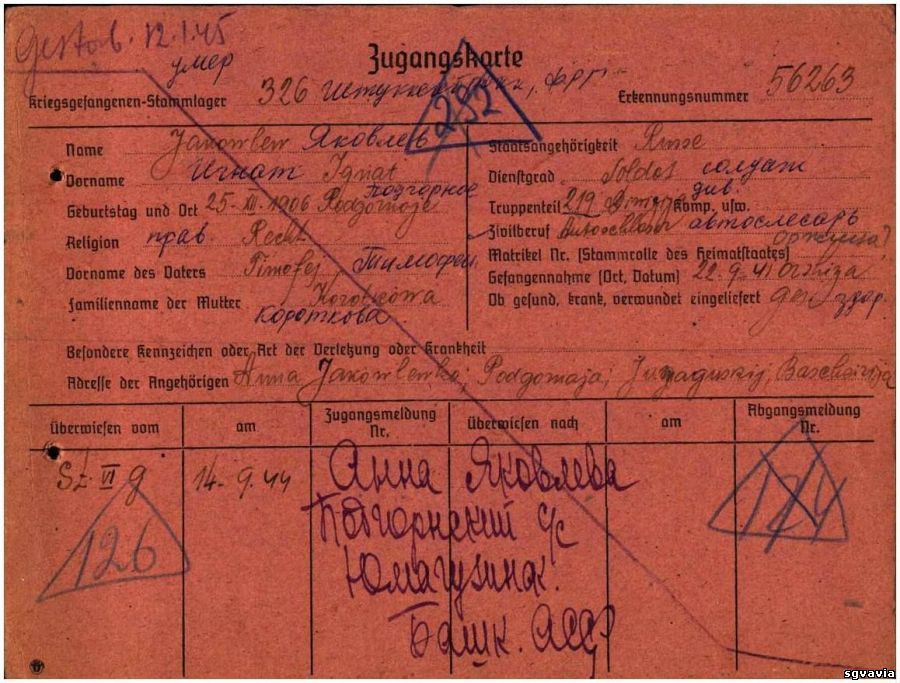 Gestorb. 12.1.45
умер
Zugangskarte
Kriegsgefangenen-Stammlager 326 ФРГ
Erkennungsnummer 56263
282
Name Jakowlew Яковлев
Vorname Игнат Ignat
Geburtstag und Ort 25. XII. 1906 Podgornoje Подгорное
Religion прав. Recht
Vorname des Vaters Timofej Тимофей
Familienname der Mutter Korotkowa
Короткова
Staatsangehörigkeit Russe
Dienstgrad Soldat солдат
Truppenteil 219 див. Komp. usw.
Zivilberuf Autoschlosser автослесарь
Matrikel Nr. (Stammrolle des Heimatstaates)
Gefangennahme (Ort, Datum) 22.9.41
Ob gesund, krank, verwundet eingeliefert Ges. здор.
Besondere Kennzeichen oder Art der Verletzung oder Krankheit
Adresse der Angehörigen Anna Jakowlewa; Podgornaja;
überwiesen vom
am
Zugangsmeldung Nr.
überwiesen nach
am
Abgangsmeldung Nr.
St. VI g
14.9.44
126
174
Анна Яковлева
Подгорнский с/с
Юмагузинск.
Башк. АССР
sgvavia